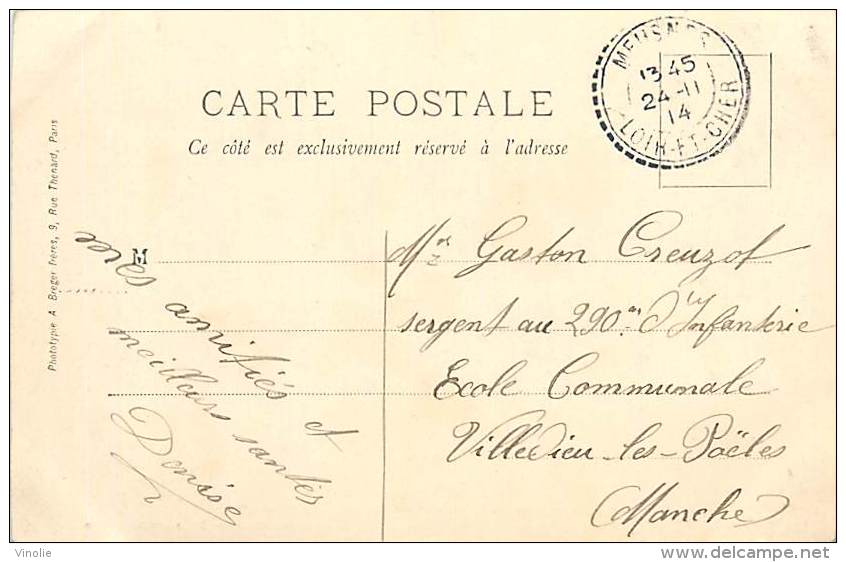 MEUSNES
13 45
24-11
14
LOIR-ET-CHER
CARTE POSTALE
Ce côté est exclusivement réservé à l'adresse
Phototypie A. Breger frères, 9, Rue Thénard, Paris
M
amitiés et
meilleurs santés
Denise
Gaston Creuzot
sergent au 290 d'Infanterie
Ecole Communale
Villedieu-les-Poëles
Manche
Vinolie
www.delcampe.net